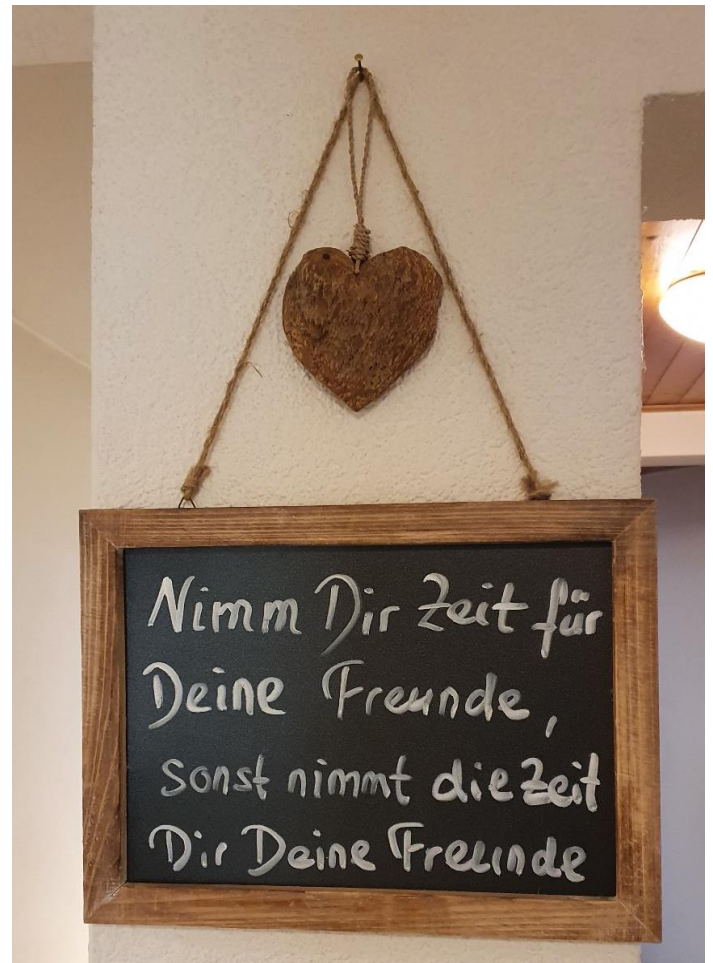 Nimm Dir Zeit für
Deine Freunde,
sonst nimmt die Zeit
Dir Deine Freunde